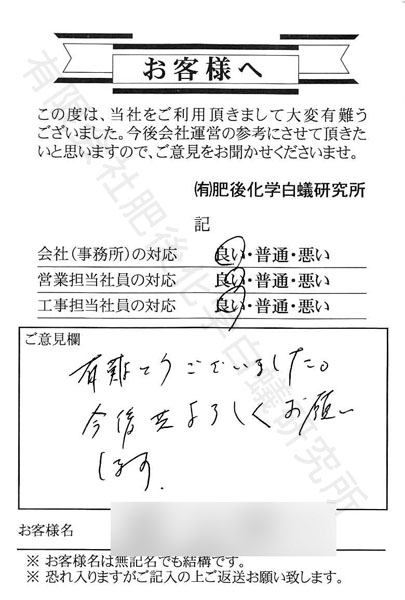 お客様へ
この度は、当社をご利用頂きまして大変有難う
ございました。今後会社運営の参考にさせて頂きた
いと思いますので、ご意見をお聞かせくださいませ。
㈲肥後化学白蟻研究所
記
会社(事務所)の対応 良い・普通・悪い
営業担当社員の対応 良い・普通・悪い
工事担当社員の対応 良い・普通・悪い
ご意見欄
有難とうございました。
今後共よろしくお願い
します.
お客様名
※ お客様名は無記名でも結構です。
※ 恐れ入りますがご記入の上ご返送お願い致します。
有限会社肥後化学白蟻研究所